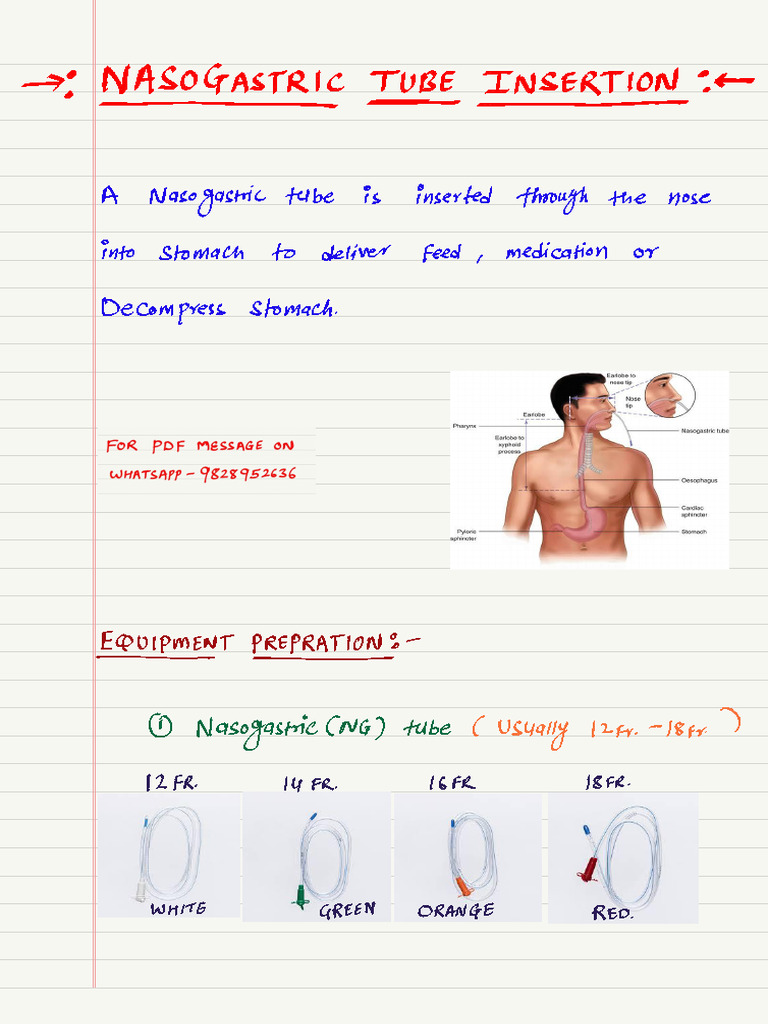 →: NASOGASTRIC TUBE INSERTION :←
A Nasogastric tube is inserted through the nose
into Stomach to deliver feed, medication or
Decompress Stomach.
Earlobe to
nose tip
Nose
tip
Earlobe
Pharynx
Nasogastric tube
Earlobe to
xyphoid
process
FOR PDF MESSAGE ON
WHATSAPP - 9828952636
Oesophagus
Cardiac
sphincter
Pyloric
sphincter
Stomach
EQUIPMENT PREPRATION:-
① Nasogastric (NG) tube (Usually 12Fr. - 18Fr.)
12 FR. 14 FR. 16 FR 18 FR.
WHITE GREEN ORANGE RED.